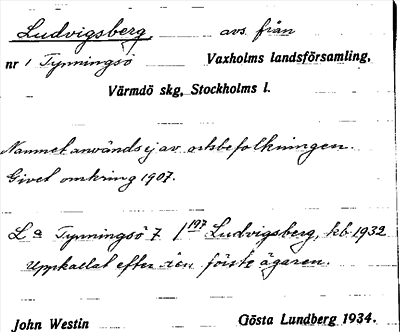 Ludvigsberg avs. från
nr 1 Tynningsö Vaxholms landsförsamling,
Värmdö skg, Stockholms l.
Namnet användes ej av ortsbefolkningen.
Givet omkring 1907.
La Tynningsö 7 / 197 Ludvigsberg, keb 1932
Uppkallat efter den förste ägaren.
John Westin Gösta Lundberg 1934.